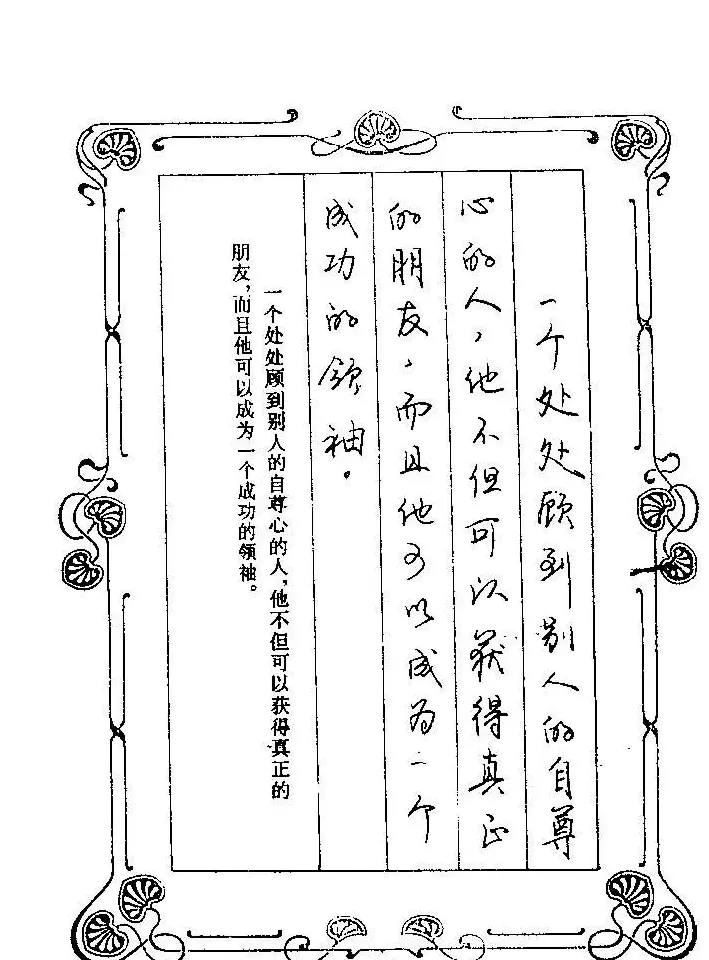 一个处处顾到别人的自尊
心的人，他不但可以获得真正
的朋友，而且他可以成为一个
成功的领袖。
一个处处顾到别人的自尊心的人，他不但可以获得真正的
朋友，而且他可以成为一个成功的领袖。